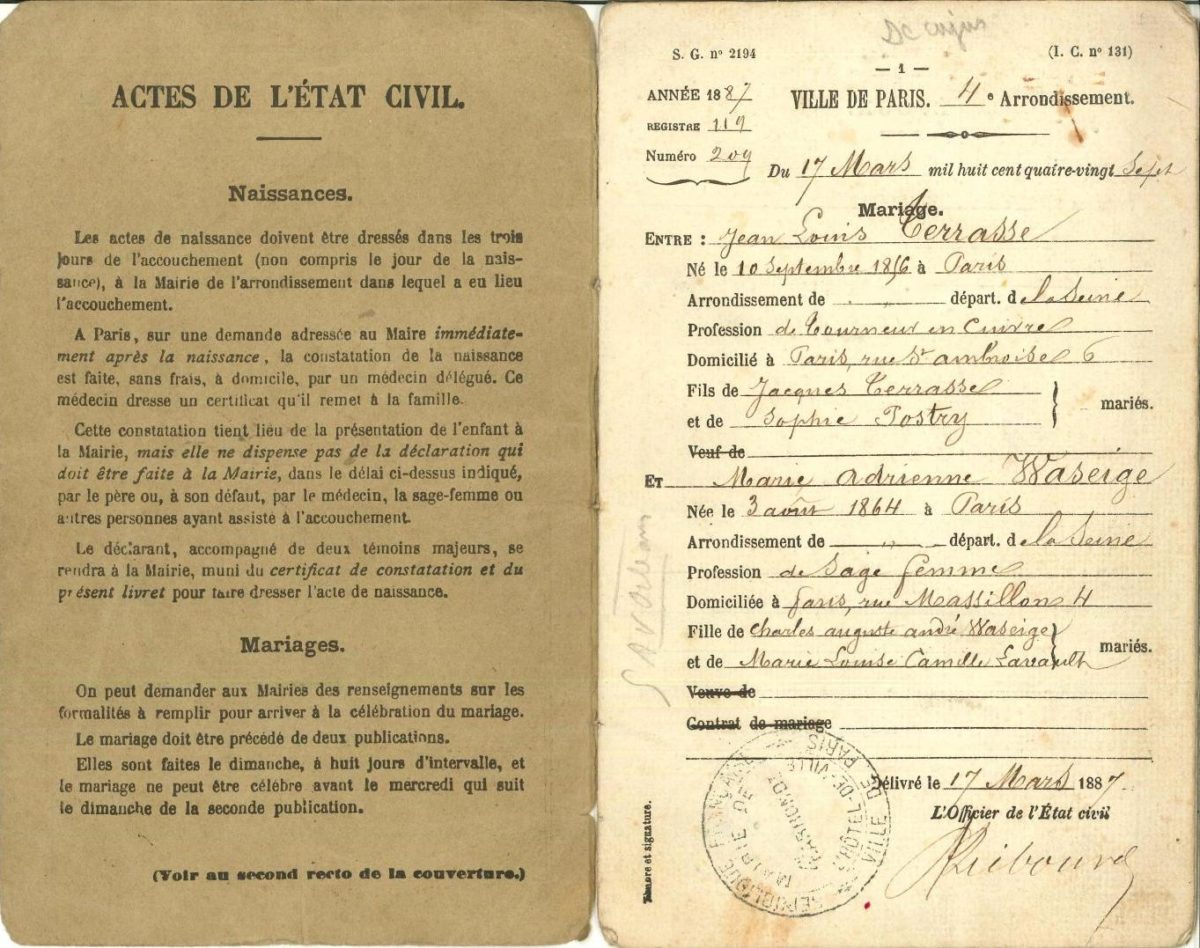 ACTES DE L'ÉTAT CIVIL.
Naissances.
Les actes de naissance doivent être dressés dans les trois
jours de l'accouchement (non compris le jour de la nais-
sance), à la Mairie de l'arrondissement dans lequel a eu lieu
l'accouchement.
A Paris, sur une demande adressée au Maire immédiate-
ment après la naissance, la constatation de la naissance
est faite, sans frais, à domicile, par un médecin délégué. Ce
médecin dresse un certificat qu'il remet à la famille.
Cette constatation tient lieu de la présentation de l'enfant à
la Mairie, mais elle ne dispense pas de la déclaration qui
doit être faite à la Mairie, dans le délai ci-dessus indiqué,
par le père ou, à son défaut, par le médecin, la sage-femme ou
autres personnes ayant assisté à l'accouchement.
Le déclarant, accompagné de deux témoins majeurs, se
rendra à la Mairie, muni du certificat de constatation et du
présent livret pour faire dresser l'acte de naissance.
Mariages.
On peut demander aux Mairies des renseignements sur les
formalités à remplir pour arriver à la célébration du mariage.
Le mariage doit être précédé de deux publications.
Elles sont faites le dimanche, à huit jours d'intervalle, et
le mariage ne peut être célèbre avant le mercredi qui suit
le dimanche de la seconde publication.
(Voir au second recto de la couverture.)
De cujus
S. G. nº 2194 (I. C. nº 131)
— 1 —
ANNÉE 1887 VILLE DE PARIS. 4e Arrondissement.
REGISTRE 119
Numéro 209
Du 17 Mars mil huit cent quatre-vingt Sept
Mariage.
ENTRE : Jean Louis Terrasse
Né le 10 Septembre 1856 à Paris
Arrondissement de " départ. de la Seine
Profession de Tourneur en Cuivre
Domicilié à Paris, rue St ambroise 6
Fils de Jacques Terrasse
et de Sophie Postry } mariés.
Veuf de
ET Marie Adrienne Waseige
Née le 3 août 1864 à Paris
Arrondissement de " départ. de la Seine
Profession de Sage femme
Domiciliée à Paris, rue Massillon 4
Fille de Charles auguste andré Waseige
et de Marie Louise Camille Lavault } mariés.
Veuve de
Contrat de mariage
Délivré le 17 Mars 1887.
L'Officier de l'État civil
Timbre et signature.
RÉPUBLIQUE FRANÇAISE
VILLE DE PARIS
MAIRIE DU 4e ARRONDt
HÔTEL-DE-VILLE